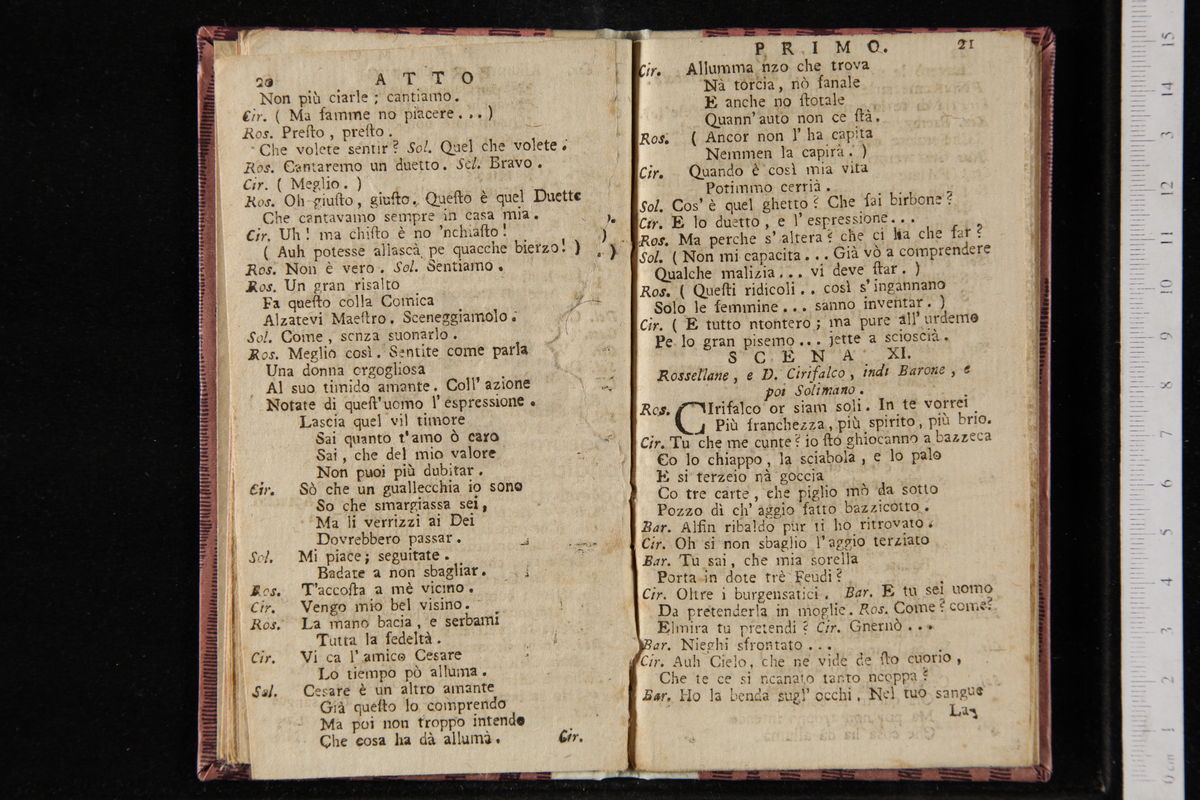 20 ATTO
Non più ciarle ; cantiamo .
Cir. ( Ma famme no piacere . . . )
Ros. Preſto , preſto .
Che volete sentir ? Sol. Quel che volete .
Ros. Cantaremo un duetto . Sol. Bravo .
Cir. ( Meglio . )
Ros. Oh giuſto , giuſto . Queſto è quel Duetto
Che cantavamo sempre in casa mia .
Cir. Uh ! ma chiſto è no 'nchiaſto !
( Auh potesse allascà pe quacche bierzo ! )
Ros. Non è vero . Sol. Sentiamo .
Ros. Un gran risalto
Fa queſto colla Comica
Alzatevi Maeſtro . Sceneggiamolo .
Sol. Come , senza suonarlo .
Ros. Meglio così . Sentite come parla
Una donna orgogliosa
Al suo timido amante . Coll' azione
Notate di queſt'uomo l'espressione .
Lascia quel vil timore
Sai quanto t'amo ò caro
Sai , che del mio valore
Non puoi più dubitar .
Cir. Sò che un guallecchia io sono
So che smargiassa sei ,
Ma li verrizzi ai Dei
Dovrebbero passar .
Sol. Mi piace ; seguitate .
Badate a non sbagliar .
Ros. T'accoſta a mè vicino .
Cir. Vengo mio bel visino .
Ros. La mano bacia , e serbami
Tutta la fedeltà .
Cir. Vi ca l'amico Cesare
Lo tiempo pò alluma .
Sol. Cesare è un altro amante
Già queſto lo comprendo
Ma poi non troppo intendo
Che cosa ha dà allumà .
Cir.
PRIMO. 21
Cir. Allumma nzo che trova
Nà torcia , nò fanale
E anche no ſtotale
Quann'auto non ce ſtà .
Ros. ( Ancor non l'ha capita
Nemmen la capirà . )
Cir. Quando è così mia vita
Potimmo cerrià .
Sol. Cos' è quel ghetto ? Che fai birbone ?
Cir. E lo duetto , e l'espressione . . .
Ros. Ma perche s'altera ? che ci ha che far ?
Sol. ( Non mi capacita . . . Già vò a comprendere
Qualche malizia . . . vi deve ſtar . )
Ros. ( Queſti ridicoli . . così s'ingannano
Solo le femmine . . . sanno inventar . )
Cir. ( E tutto ntontero ; ma pure all'urdemo
Pe lo gran pisemo . . . jette a scioscià .
SCENA XI.
Rossellane , e D. Cirifalco , indi Barone , e
poi Solimano .
Ros. CIrifalco or siam soli . In te vorrei
Più franchezza , più spirito , più brio .
Cir. Tu che me cunte ? io ſto ghiocanno a bazzeca
Co lo chiappo , la sciabola , e lo palo
E si terzeio nà goccia
Co tre carte , che piglio mò da sotto
Pozzo dì ch'aggio fatto bazzicotto .
Bar. Alfin ribaldo pur ti ho ritrovato .
Cir. Oh si non sbaglio l'aggio terziato
Bar. Tu sai , che mia sorella
Porta in dote trè Feudi ?
Cir. Oltre i burgensatici . Bar. E tu sei uomo
Da pretenderla in moglie . Ros. Come ? come ?
Elmira tu pretendi ? Cir. Gnernò . . .
Bar. Nieghi sfrontato . . .
Cir. Auh Cielo , che ne vide de ſto cuorio ,
Che te ce si ncanato tanto ncoppa ?
Bar. Ho la benda sugl'occhi . Nel tuo sangue
La-